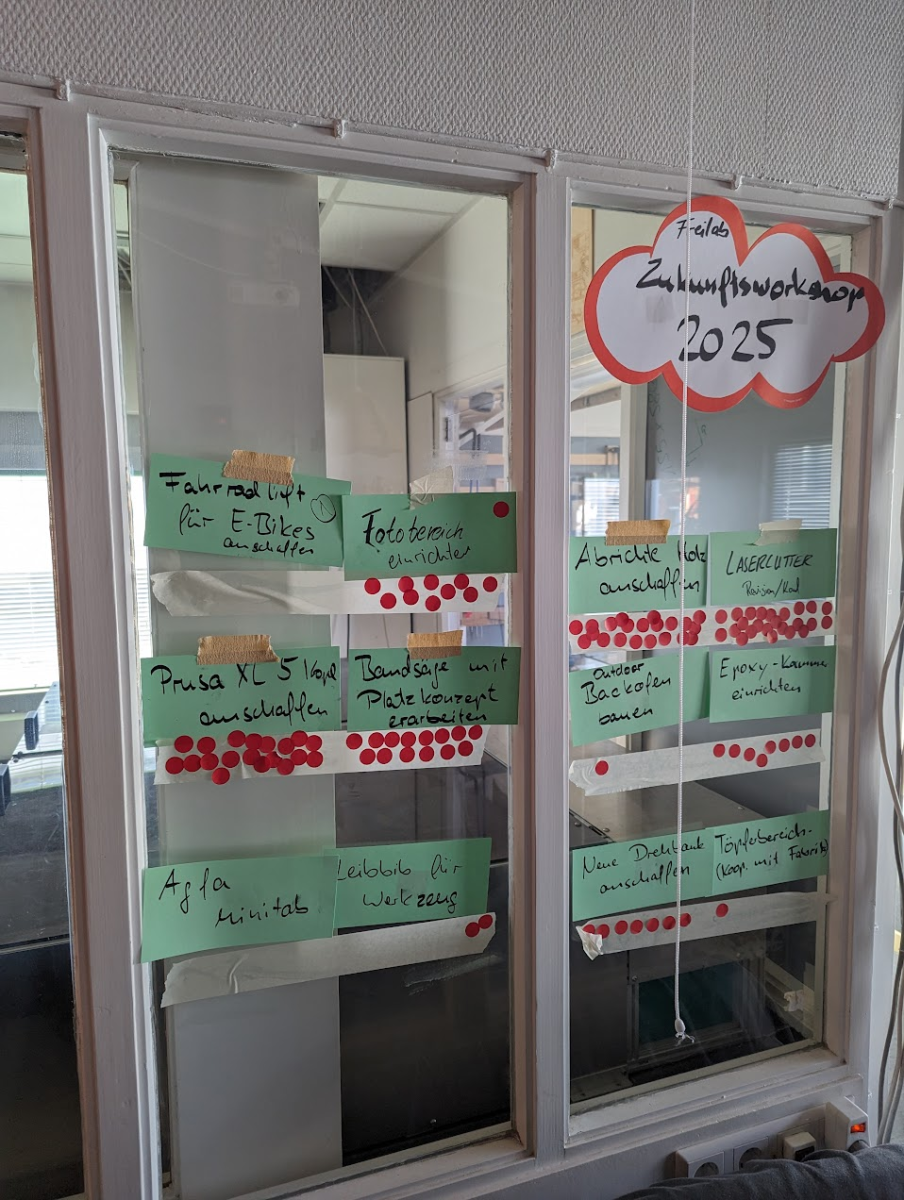 Feilab
Zukunftsworkshop
2025
Fahrradlift
für E-Bikes
anschaffen
Fotobereich
einrichten
Prusa XL 5
anschaffen
Bandsäge mit
Platzkonzept
erarbeiten
Agfa
Minilab
Leihbib für
Werkzeug
Abrichte Holz
anschaffen
LASERCUTTER
outdoor
Backofen
bauen
Epoxy-Kammer
einrichten
Neue Drehbank
anschaffen
Töpferbereich-
(Koop. mit